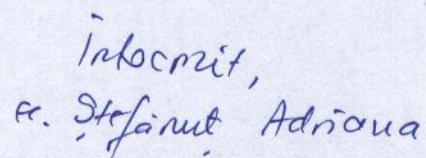 Întocmit,
Ștefănuț Adriana